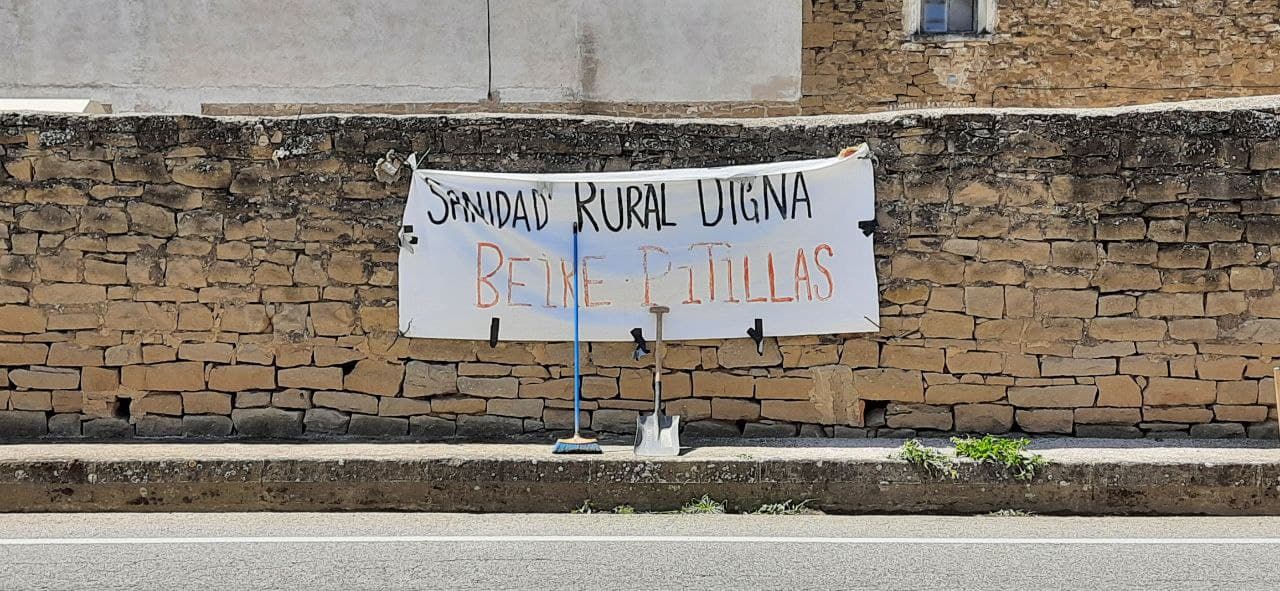 SANIDAD RURAL DIGNA
BEIKE-PITILLAS